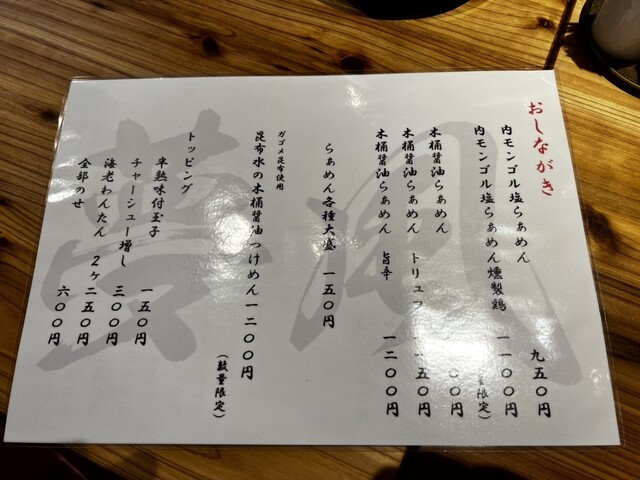 おしながき
内モンゴル塩らぁめん 九五〇円
内モンゴル塩らぁめん燻製鶏 一一〇〇円
量限定）
木桶醤油らぁめん 〇〇円
木桶醤油らぁめん トリュフ 一五〇円
木桶醤油らぁめん 旨辛 一二〇〇円
らぁめん各種大盛 一五〇円
ガゴメ昆布使用
昆布水の木桶醤油つけめん 一二〇〇円
（数量限定）
トッピング
半熟味付玉子 一五〇円
チャーシュー増し 三〇〇円
海老わんたん 2ヶ 二五〇円
全部のせ 六〇〇円
風夢